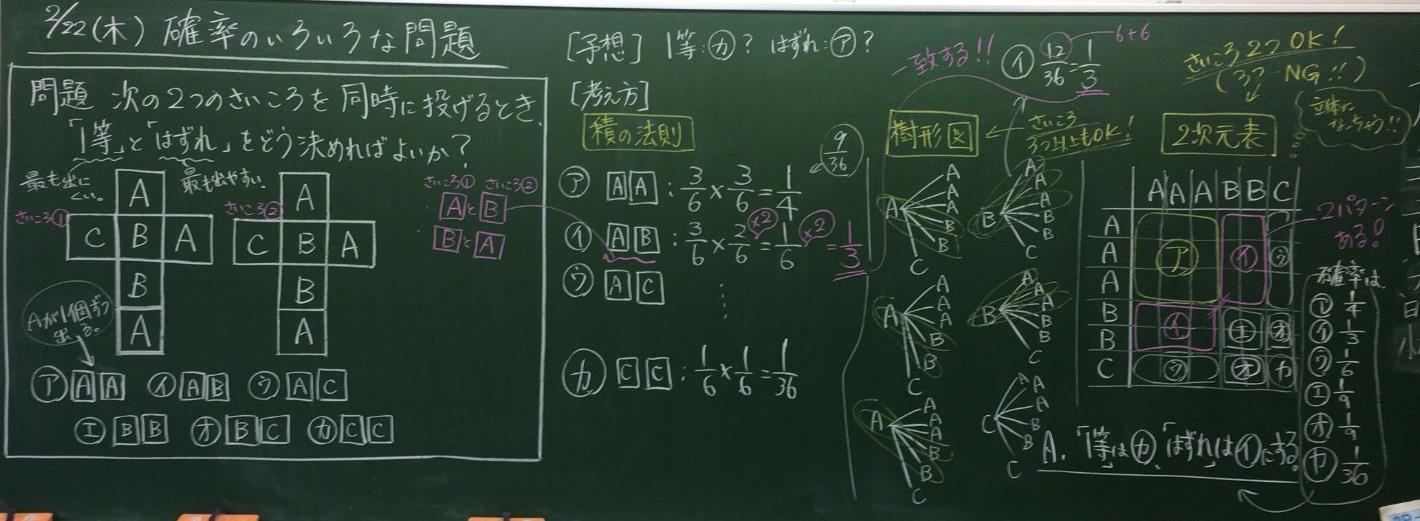 2/22(木) 確率のいろいろな問題
問題 次の2つのさいころを同時に投げるとき、
「1等」と「はずれ」をどう決めればよいか?
最も出に
くい。
最も出やすい。
さいころ①
A
C B A
B
A
さいころ②
A
C B A
B
A
さいころ① さいころ②
・AとB
・BとA
Aが1個ずつ
出る。
㋐AA ㋑AB ㋒AC
㋓BB ㋔BC ㋕CC
[予想] 1等:㋕? はずれ:㋐?
[考え方]
積の法則
9/36
㋐ AA : 3/6 × 3/6 = 1/4
㋑ AB : 3/6 × 2/6 ×2 = 1/6 ×2 = 1/3
㋒ AC
⋮
㋕ CC : 1/6 × 1/6 = 1/36
一致する!!
㋑ 12/36 = 1/3
6+6
樹形図
さいころ
3つ以上もOK!
A
A
A
A
B
B
C
B
A
A
A
B
B
C
A
A
A
A
B
B
C
B
A
A
A
B
B
C
A
A
A
A
B
B
C
C
A
A
A
B
B
C
さいころ2つOK!
(3つ NG!!)
立体に
なっちゃう!!
2次元表
A A A B B C
A
A ㋐ ㋑ ㋒
A
B ㋑ ㋓ ㋔
B
C ㋒ ㋔ ㋕
2パターン
ある!
確率は、
㋐ 1/4
㋑ 1/3
㋒ 1/6
㋓ 1/9
㋔ 1/9
㋕ 1/36
A. 「1等」は㋕、「はずれ」は㋑にする。